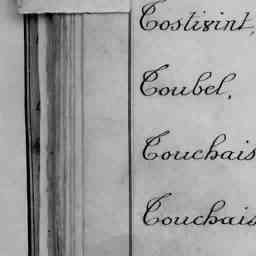 Tostivint,
Toubel,
Touchais
Touchais